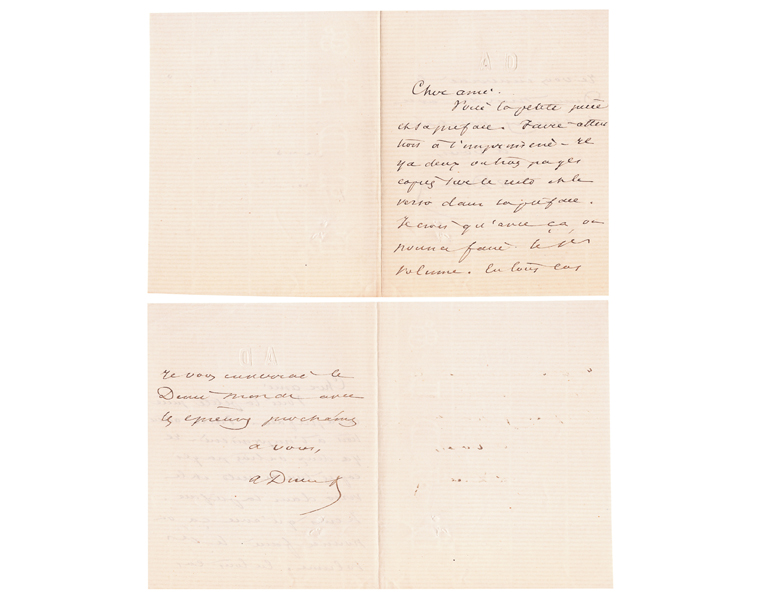 Cher ami.
Voici la petite pièce
et sa préface. Faire atten
tion à l'imprimerie - il
y a deux autres pages
copiés sur le recto et le
verso dans la préface.
Je crois qu'avec ça on
pourra faire le 1er
volume. En tous cas
je vous enverrai le
Demi monde avec
les épreuves prochaines
à vous,
A Dumas